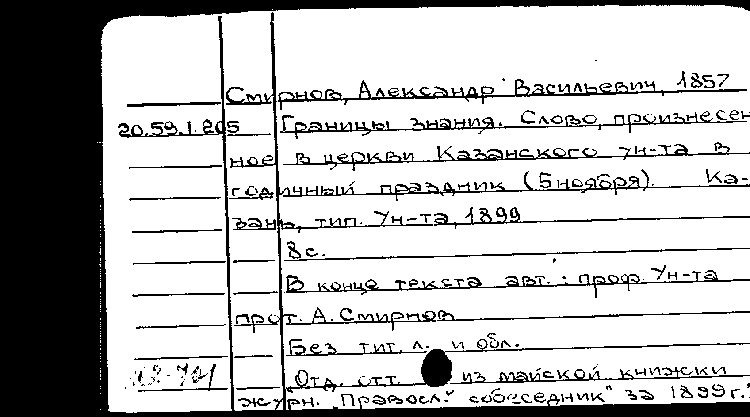 Смирнов, Александр Васильевич, 1857
20.59.1.205 Границы знания. Слово, произнесен
ное в церкви Казанского Ун-та в
годичный праздник (5 ноября). Ка-
зань, тип. Ун-та, 1899
8с.
В конце текста авт.: проф. Ун-та
прот. А. Смирнов
Без тит. л. и обл.
Отд. отт. из майской книжки
журн. "Правосл. собеседник" за 1899 г.